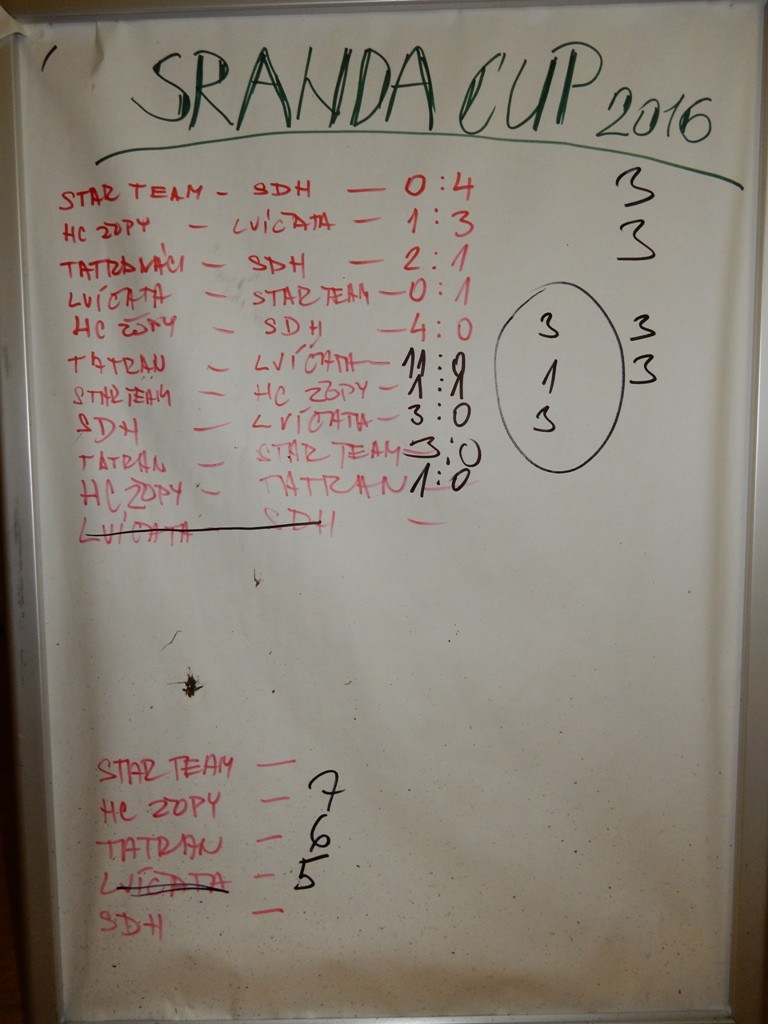 SRANDA CUP 2016
STAR TEAM - SDH - 0:4 3
HC ZOPY - LVÍČATA - 1:3 3
TATRANÁCI - SDH - 2:1
LVÍČATA - STAR TEAM - 0:1
HC ZOPY - SDH - 4:0 3 3
TATRAN - LVÍČATA - 11:0 1 3
STAR TEAM - HC ZOPY - 1:1
SDH - LVÍČATA - 3:0 3
TATRAN - STAR TEAM - 3:0
HC ZOPY - TATRAN 1:0
LVÍČATA SDH -
STAR TEAM -
HC ZOPY - 7
TATRAN - 6
LVÍČATA - 5
SDH -